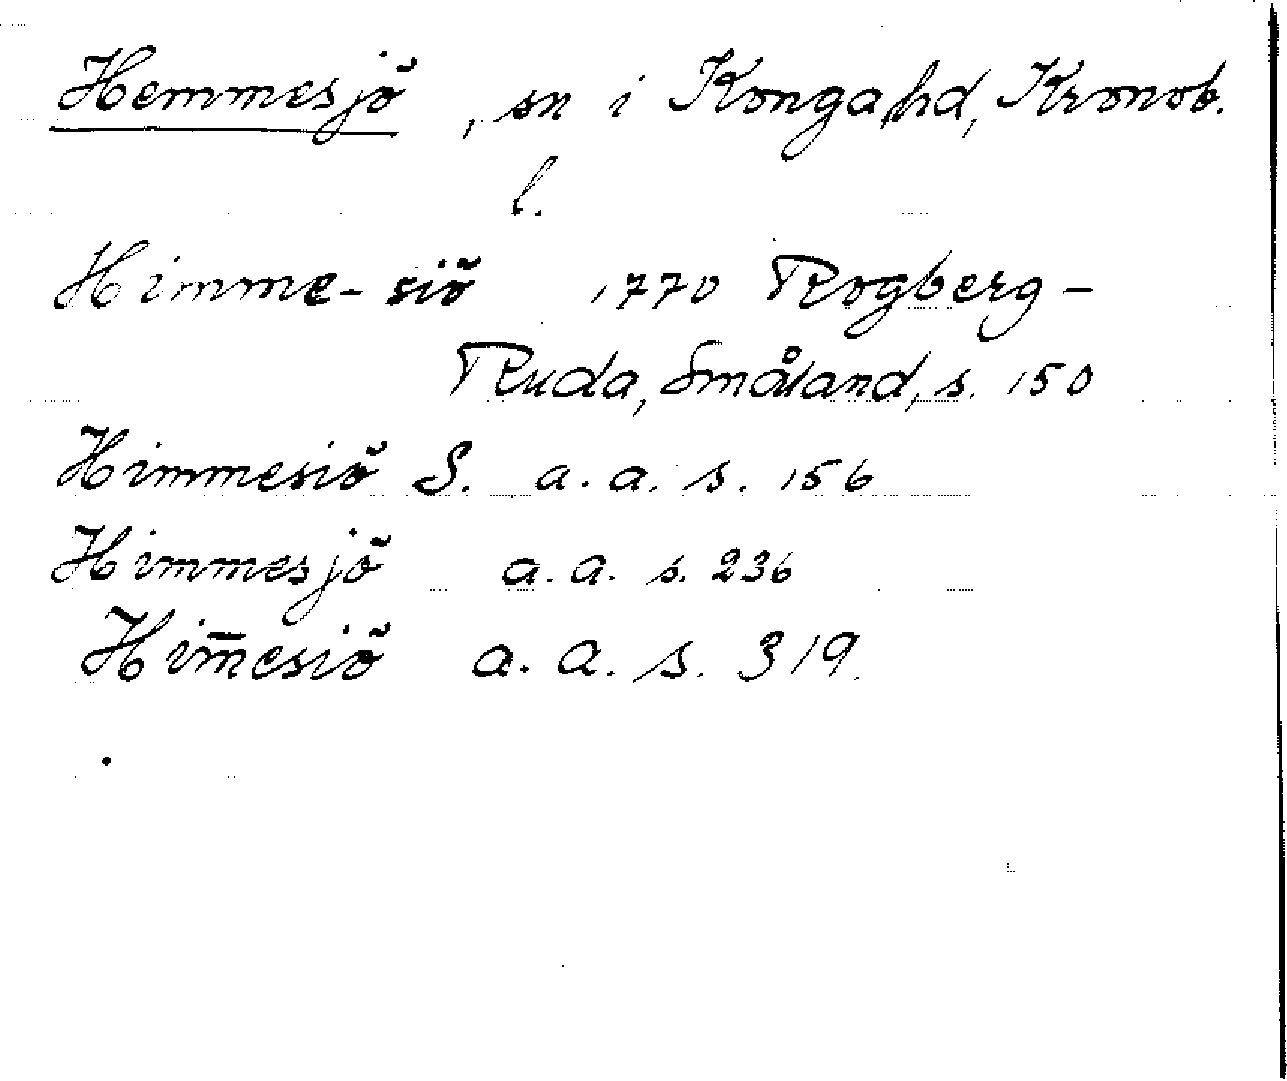 Hemmesjö, sn i Konga hd, Kronob.
l.
Himme-siö 1770 Rogberg-
Ruda, Småland, s. 150
Himmesiö S. a.a. s. 156
Himmesjö a.a. s. 236
Him̅esiö a.a. s. 319.